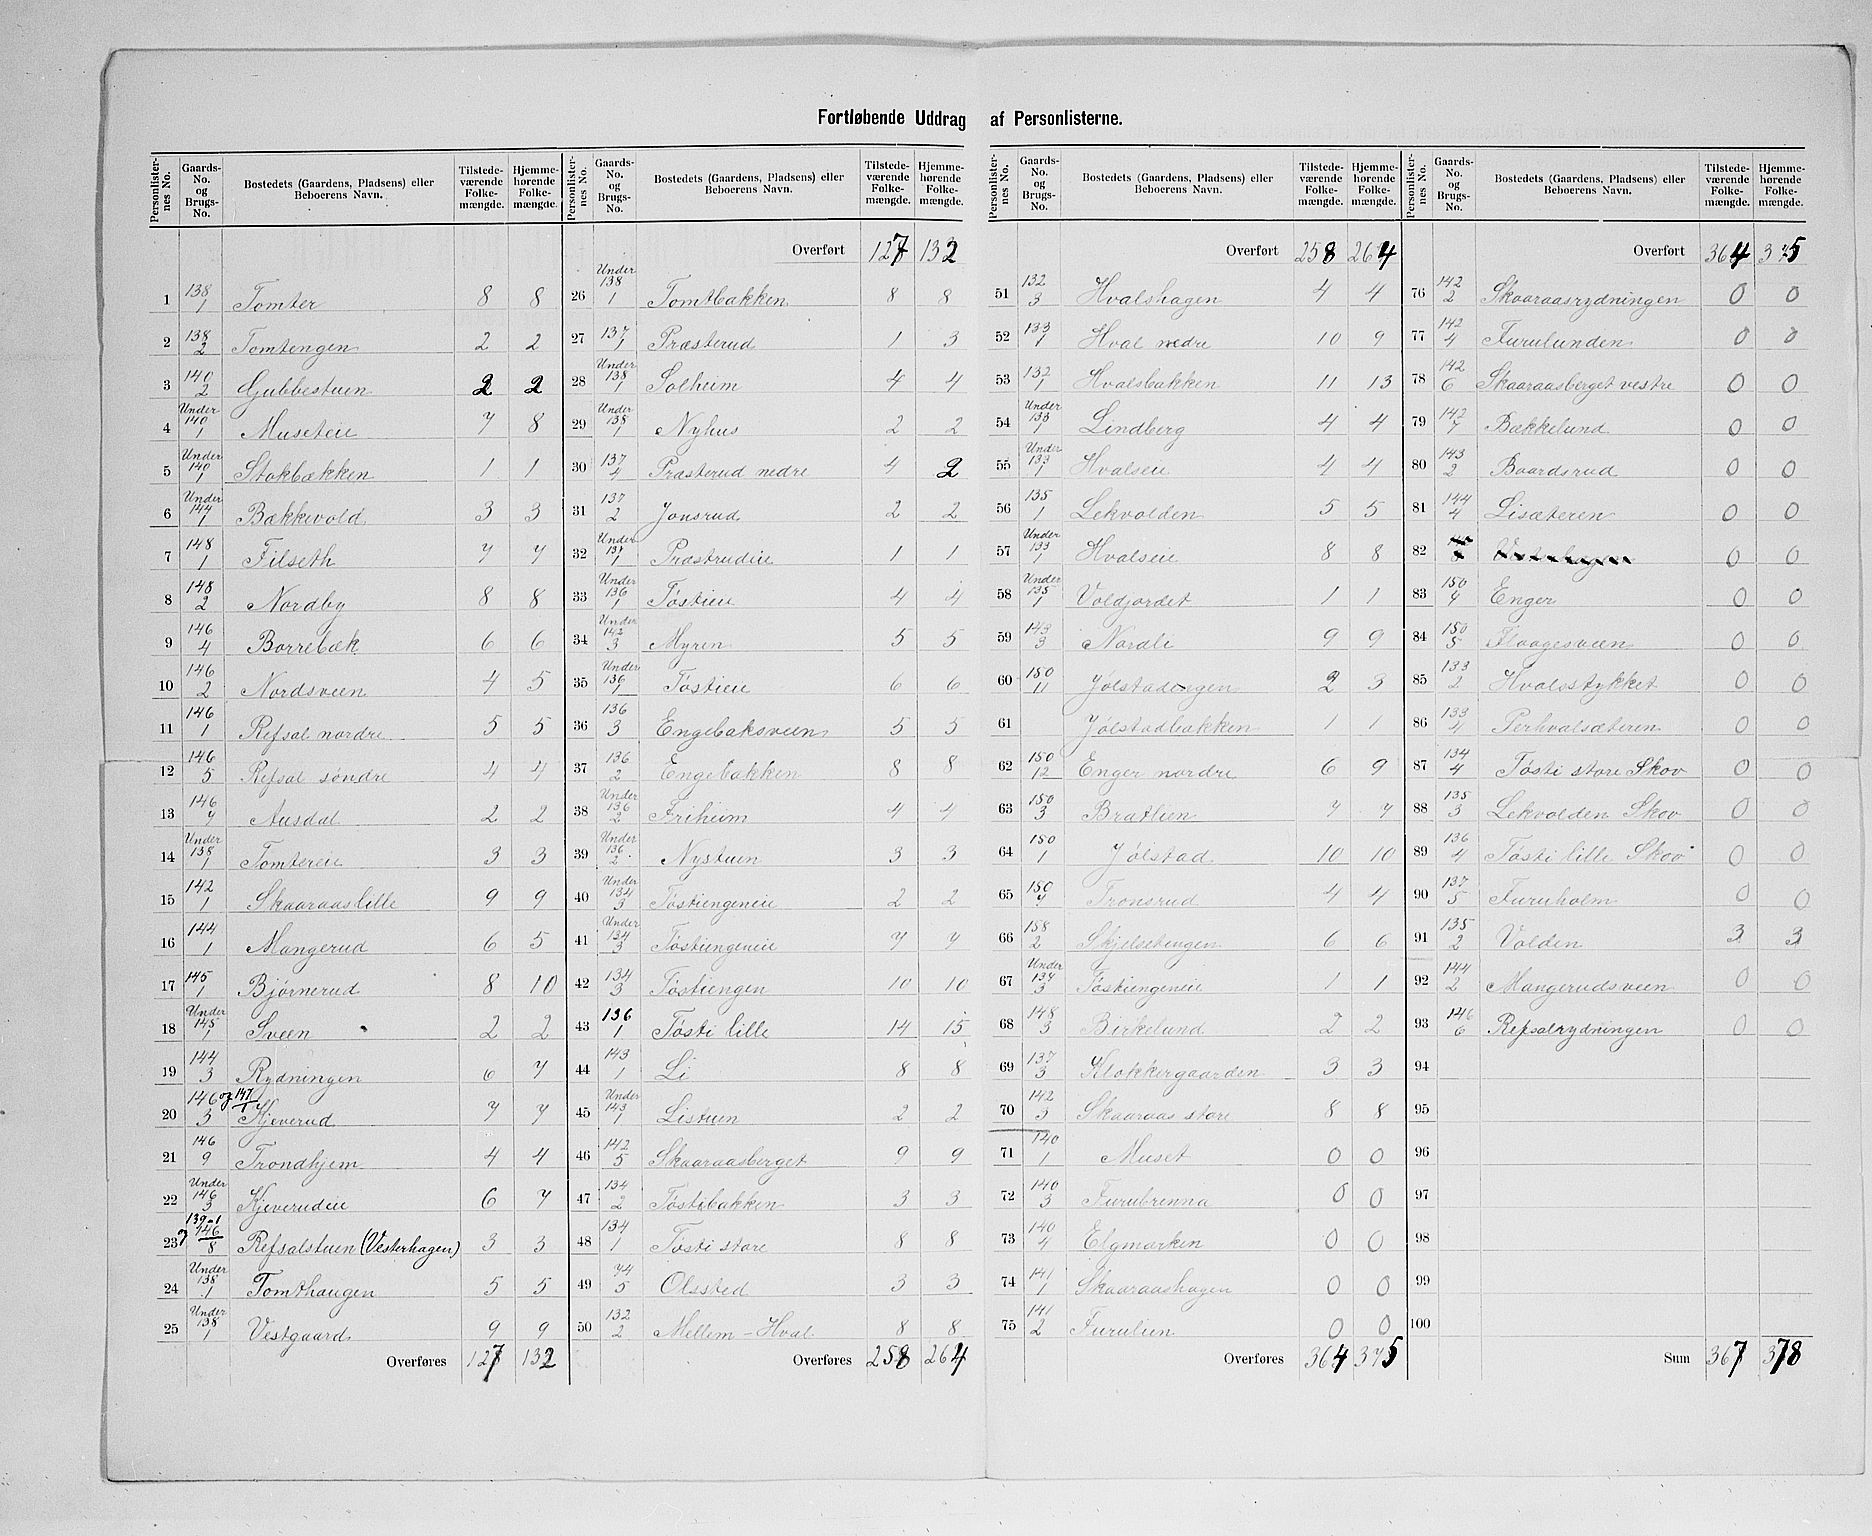 Fortløbende Uddrag af Personlisterne.
Personlisternes No. | Gaards-No. og Brugs-No. | Bostedets (Gaardens, Pladsens) eller Beboerens Navn. | Tilstedeværende Folkemængde. | Hjemmehørende Folkemængde.
1 138/1 Tomter 8 8
2 138/2 Tomtengen 2 2
3 140/2 Gubbestuen 2 2
4 Under 140/1 Museteie 7 8
5 Under 140/1 Stokbækken 1 1
6 Under 144/1 Bækkevold 3 3
7 148/1 Filseth 7 7
8 148/2 Nordby 8 8
9 146/4 Borrebæk 6 6
10 146/2 Nordsveen 4 5
11 146/1 Refsal nordre 5 5
12 146/5 Refsal søndre 4 4
13 146/7 Ausdal 2 2
14 Under 138/1 Tomtereie 3 3
15 142/1 Skaaraas lille 9 9
16 144/1 Mangerud 6 5
17 145/1 Bjørnerud 8 10
18 Under 145/1 Sveen 2 2
19 144/3 Rydningen 6 7
20 146/3 og 147/1 Kjeverud 7 7
21 146/9 Trondhjem 4 4
22 Under 146/3 Kjeverudeie 6 7
23 139-1 og 146/8 Refsalstuen (Vesterhagen) 3 3
24 Under 138/1 Tomthaugen 5 5
25 Under 138/1 Vestgaard 9 9
Overføres 127 132
Personlisternes No. | Gaards-No. og Brugs-No. | Bostedets (Gaardens, Pladsens) eller Beboerens Navn. | Tilstedeværende Folkemængde. | Hjemmehørende Folkemængde.
Overført 127 132
26 Under 138/1 Tomtbakken 8 8
27 137/1 Præsterud 1 3
28 Under 138/1 Solheim 4 4
29 Under 138/1 Nyhus 2 2
30 137/4 Præsterud nedre 4 2
31 137/2 Jonsrud 2 2
32 Under 137/1 Præstrudeie 1 1
33 Under 136/1 Tøstieie 4 4
34 Under 142/3 Myren 5 5
35 Under 136/1 Tøstieie 6 6
36 136/3 Engebaksveen 5 5
37 136/2 Engebakken 8 8
38 Under 136/2 Friheim 4 4
39 Under 136/2 Nystuen 3 3
40 Under 134/3 Tøstiengeneie 2 2
41 Under 134/3 Tøstiengeneie 7 7
42 134/3 Tøstiengen 10 10
43 136/1 Tøsti lille 14 15
44 143/1 Li 8 8
45 Under 143/1 Listuen 2 2
46 142/5 Skaaraasberget 9 9
47 134/2 Tøstibakken 3 3
48 134/1 Tøsti store 8 8
49 74/5 Olssted 3 3
50 132/2 Mellem-Hval 8 8
Overføres 258 264
Personlisternes No. | Gaards-No. og Brugs-No. | Bostedets (Gaardens, Pladsens) eller Beboerens Navn. | Tilstedeværende Folkemængde. | Hjemmehørende Folkemængde.
Overført 258 264
51 132/3 Hvalshagen 4 4
52 133/1 Hval nedre 10 9
53 132/1 Hvalsbakken 11 13
54 Under 133/1 Lindberg 4 4
55 Under 133/1 Hvalseie 4 4
56 135/1 Lekvolden 5 5
57 Under 133/1 Hvalseie 8 8
58 Under 135/1 Voldjordet 1 1
59 143/3 Nordli 9 9
60 150/11 Jølstadengen 2 3
61 Jølstadbakken 1 1
62 150/12 Enger nordre 6 9
63 150/3 Bratlien 7 7
64 150/1 Jølstad 10 10
65 150/7 Tronsrud 4 4
66 158/2 Skjelsetengen 6 6
67 Under 134/3 Tøstiengeneie 1 1
68 148/3 Birkelund 2 2
69 137/3 Klokkergaarden 3 3
70 142/3 Skaaraas store 8 8
71 140/1 Muset 0 0
72 140/3 Furubrenna 0 0
73 140/4 Elgmarken 0 0
74 141/1 Skaaraashagen 0 0
75 141/2 Furulien 0 0
Overføres 364 375
Personlisternes No. | Gaards-No. og Brugs-No. | Bostedets (Gaardens, Pladsens) eller Beboerens Navn. | Tilstedeværende Folkemængde. | Hjemmehørende Folkemængde.
Overført 364 375
76 142/2 Skaaraasrydningen 0 0
77 142/4 Furulunden 0 0
78 142/6 Skaaraasberget vestre 0 0
79 142/7 Bækkelund 0 0
80 143/2 Baardsrud 0 0
81 144/4 Lisæteren 0 0
82 0 0
83 150/4 Enger 0 0
84 150/5 Haagesveen 0 0
85 133/2 Hvalsstykket 0 0
86 133/4 Perhvalsæteren 0 0
87 134/4 Tøsti store Skov 0 0
88 135/3 Lekvolden Skov 0 0
89 136/4 Tøsti lille Skov 0 0
90 137/5 Furuholm 0 0
91 135/2 Volden 3 3
92 144/2 Mangerudsveen 0 0
93 146/6 Refsalrydningen 0 0
94
95
96
97
98
99
100
Sum 367 378